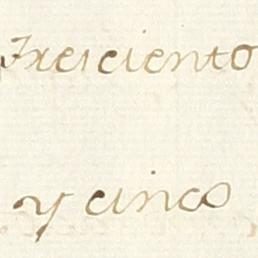 Tresciento
y cinco